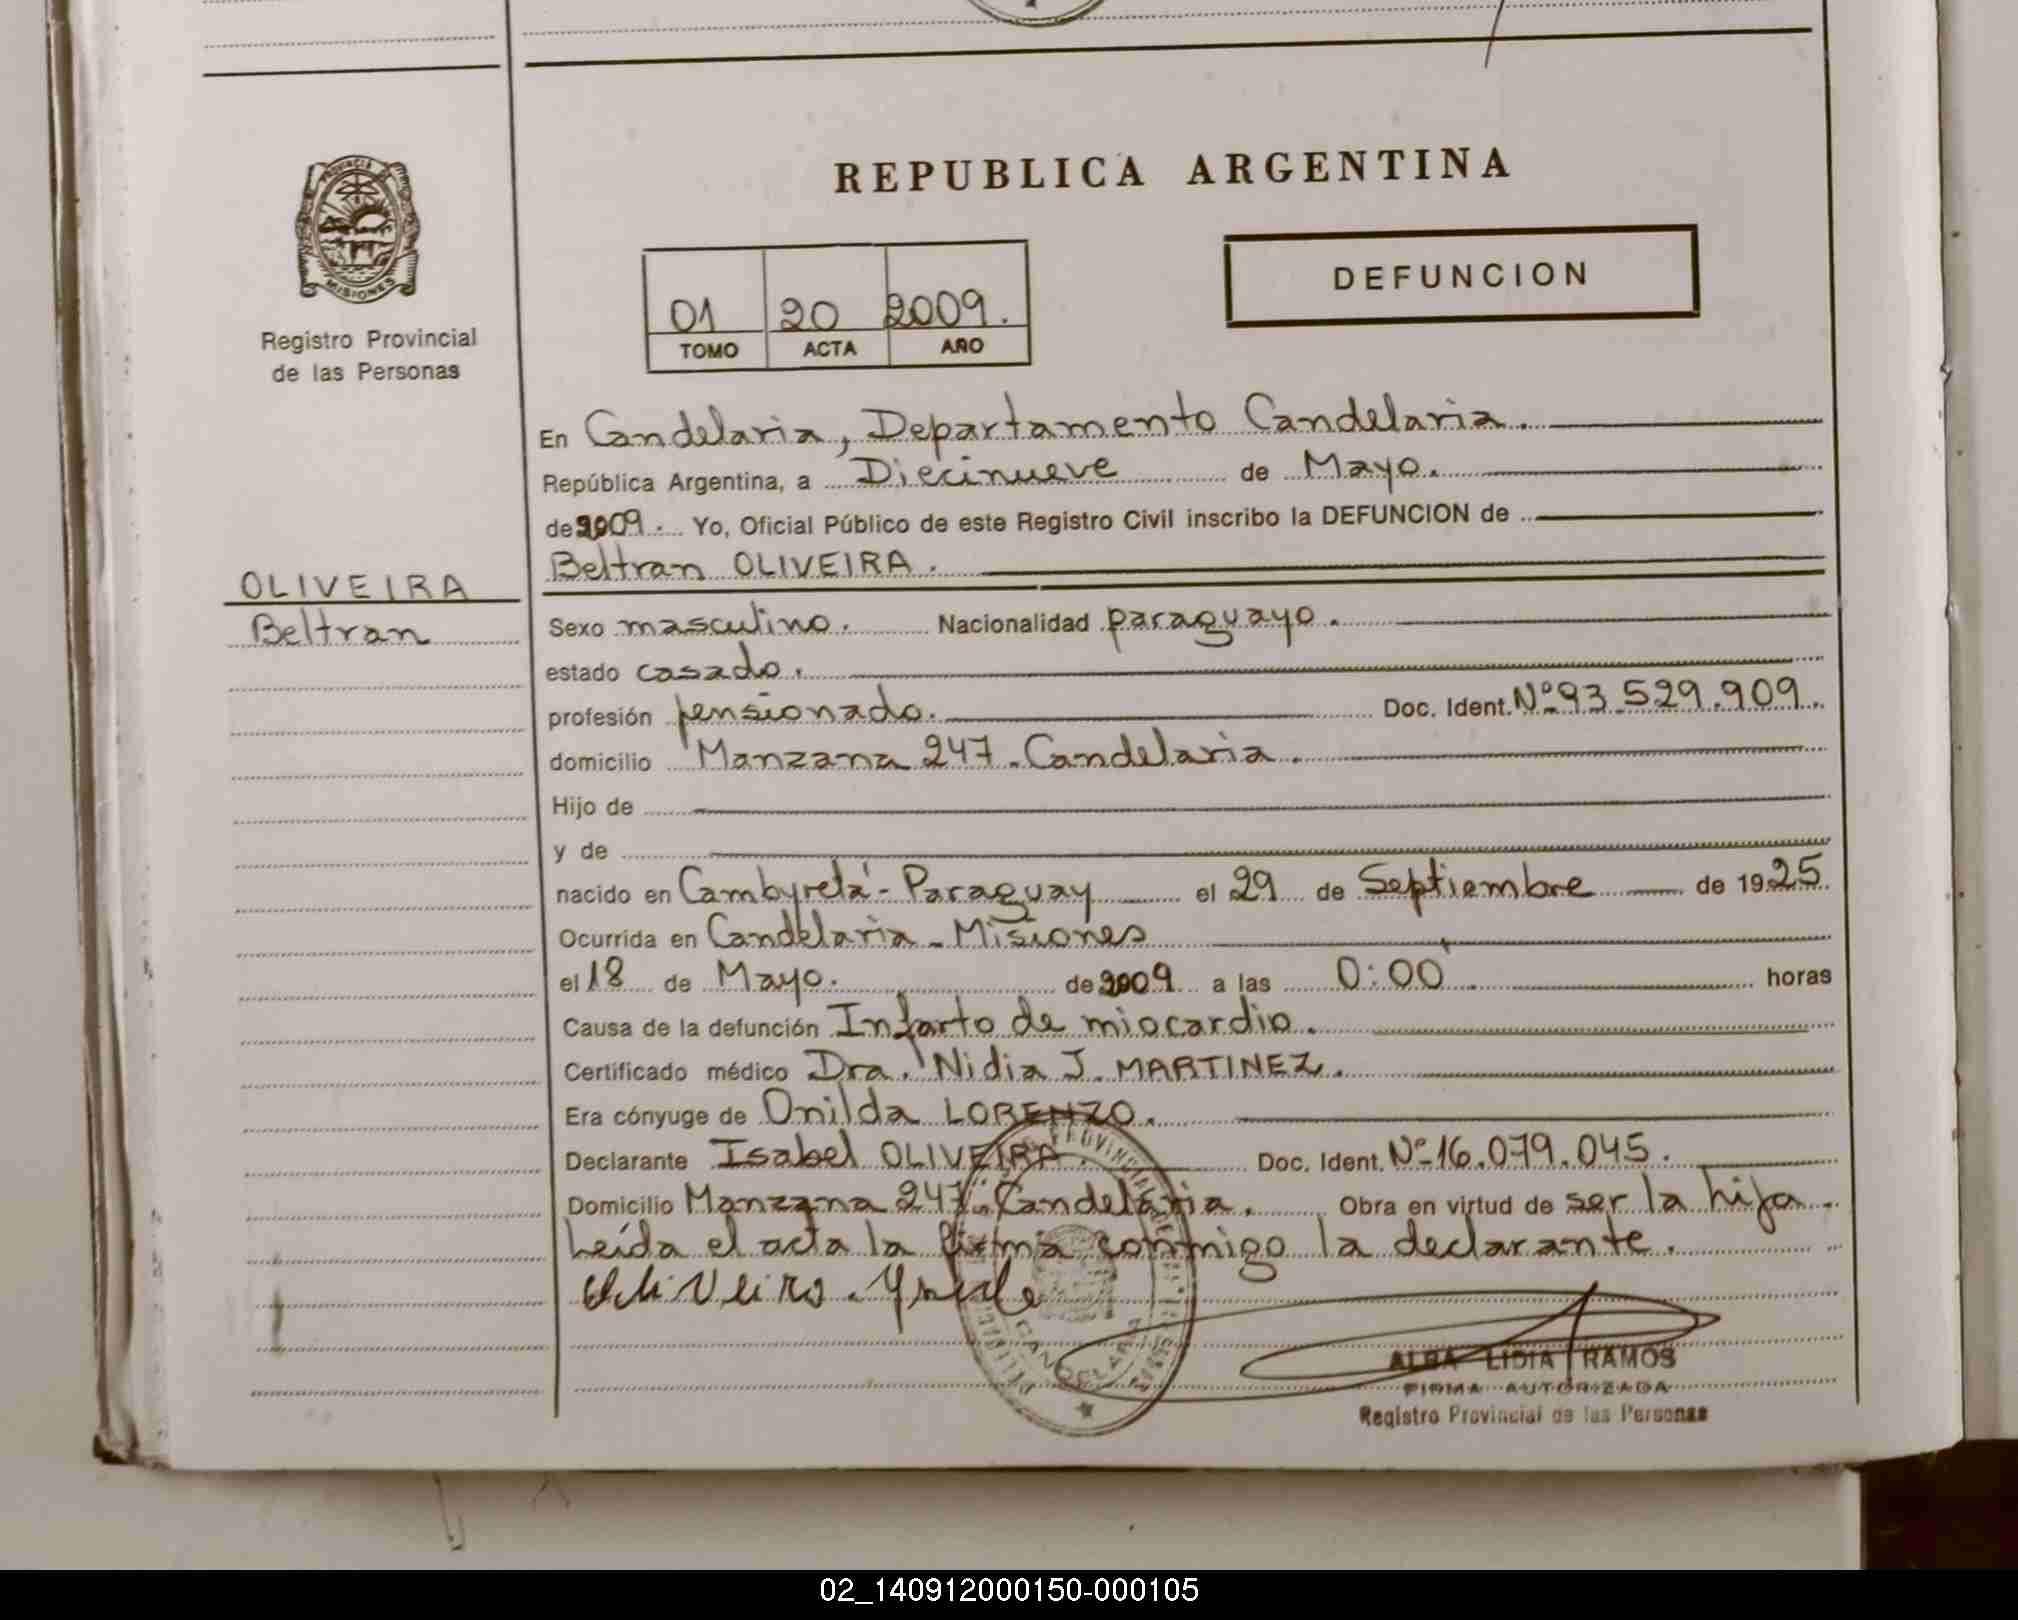 REPUBLICA ARGENTINA
PROVINCIA DE
MISIONES
Registro Provincial
de las Personas
DEFUNCION
01 20 2009.
TOMO ACTA AÑO
En Candelaria, Departamento Candelaria.
República Argentina, a Diecinueve de Mayo.
de 2009. Yo, Oficial Público de este Registro Civil inscribo la DEFUNCION de
Beltran OLIVEIRA.
OLIVEIRA
Beltran
Sexo masculino. Nacionalidad paraguayo.
estado casado.
profesión pensionado. Doc. Ident. Nº 93.529.909.
domicilio Manzana 247. Candelaria.
Hijo de
y de
nacido en Cambyretá - Paraguay el 29 de Septiembre de 1925
Ocurrida en Candelaria - Misiones
el 18 de Mayo. de 2009 a las 0:00 horas
Causa de la defunción Infarto de miocardio.
Certificado médico Dra. Nidia J. MARTINEZ.
Era cónyuge de Onilda LORENZO.
Declarante Isabel OLIVEIRA. Doc. Ident. Nº 16.079.045.
Domicilio Manzana 247 - Candelaria. Obra en virtud de ser la hija.
Leída el acta la firma conmigo la declarante.
ALBA LIDIA RAMOS
FIRMA AUTORIZADA
Registro Provincial de las Personas
02_140912000150-000105